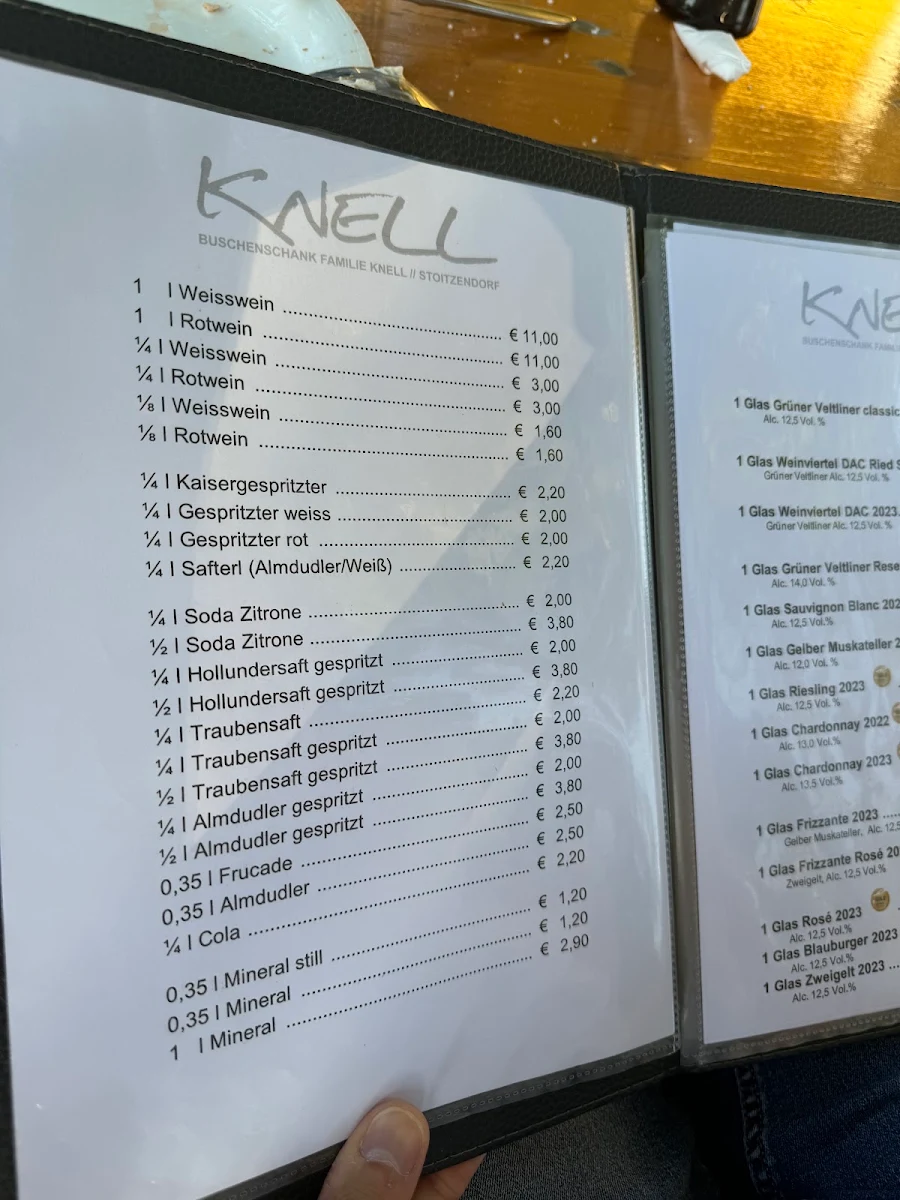 KNELL
BUSCHENSCHANK FAMILIE KNELL // STOITZENDORF
1 l Weisswein ........ € 11,00
1 l Rotwein ........ € 11,00
¼ l Weisswein ........ € 3,00
¼ l Rotwein ........ € 3,00
⅛ l Weisswein ........ € 1,60
⅛ l Rotwein ........ € 1,60
¼ l Kaisergespritzter ........ € 2,20
¼ l Gespritzter weiss ........ € 2,00
¼ l Gespritzter rot ........ € 2,00
¼ l Safterl (Almdudler/Weiß) ........ € 2,20
¼ l Soda Zitrone ........ € 2,00
½ l Soda Zitrone ........ € 3,80
¼ l Hollundersaft gespritzt ........ € 2,00
½ l Hollundersaft gespritzt ........ € 3,80
¼ l Traubensaft ........ € 2,20
¼ l Traubensaft gespritzt ........ € 2,00
½ l Traubensaft gespritzt ........ € 3,80
¼ l Almdudler gespritzt ........ € 2,00
½ l Almdudler gespritzt ........ € 3,80
0,35 l Frucade ........ € 2,50
0,35 l Almdudler ........ € 2,50
¼ l Cola ........ € 2,20
0,35 l Mineral still ........ € 1,20
0,35 l Mineral ........ € 1,20
1 l Mineral ........ € 2,90
KNE
BUSCHENSCHANK
1 Glas Grüner Veltliner classic
Alc. 12,5 Vol. %
1 Glas Weinviertel DAC Ried S
Grüner Veltliner Alc. 12,5 Vol. %
1 Glas Weinviertel DAC 2023
Grüner Veltliner Alc. 12,5 Vol. %
1 Glas Grüner Veltliner Rese
Alc. 14,0 Vol. %
1 Glas Sauvignon Blanc 202
Alc. 12,5 Vol.%
1 Glas Gelber Muskateller 2
Alc. 12,0 Vol. %
1 Glas Riesling 2023
Alc. 12,5 Vol. %
1 Glas Chardonnay 2022
Alc. 13,0 Vol.%
1 Glas Chardonnay 2023
Alc. 13,5 Vol.%
1 Glas Frizzante 2023 .....
Gelber Muskateller, Alc. 12,5
1 Glas Frizzante Rosé 20
Zweigelt, Alc. 12,5 Vol.%
1 Glas Rosé 2023
Alc. 12,5 Vol.%
1 Glas Blauburger 2023
Alc. 12,5 Vol.%
1 Glas Zweigelt 2023 ...
Alc. 12,5 Vol.%